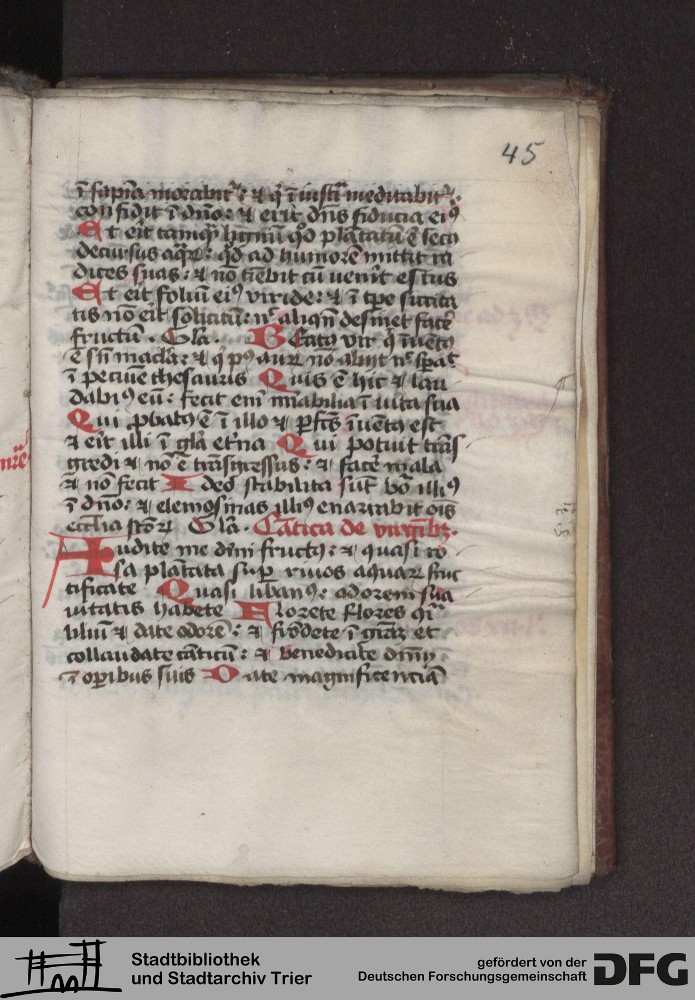 45
ī sapīa morabitᷣ: ⁊ qͥ ī iusti͛ meditabitᷣ.
confidit ī dn̄o: ⁊ erit dn̄s fiducia eiꝰ
Et erit tamqᷓ lignū qd̓ plātatū ē secꝰ
decursus aqꝝ: qd̓ ad humorē mittit ra
dices suas: ⁊ nō timebit cū venerit estus
Et erit foliū eiꝰ viride: ⁊ ī tp̄e siccita
tis nō erit solicitū: nͨ aliqn̄ desinet facē
fructū. Gl̄a. Beatꝰ vir qͥ īuētꝰ
ē sn̄ macl̄a: ⁊ qͥ pꝰ aurū nō abijt nͨ sp̄aͭ
ī pecunie thesauris Quis ē hic ⁊ lau
dabimꝰ eū: fecit eni͛ mirabilia ī uita sua
Qui ꝓbatꝰ ē ī illo ⁊ ꝑfectꝰ īuētꝰ est
⁊ erit illi ī gl̄a et̓na Qui potuit trās
gredi ⁊ nō ē trāsgressus: ⁊ facē mala
⁊ nō fecit Ideo stabilita sūt bōa illiꝰ
ī dn̄o: ⁊ elemosinas illiꝰ enarrabit oīs
ecclīa scōꝝ Gl̄a. Cātica de virgībꝫ.
Audite me diuini fructꝰ: ⁊ quasi ro
sa plātata suꝑ riuos aquaꝝ fruc
tificate Quasi libanꝰ: odorem sua
uitatis habete Florete flores qͣi
liliū ⁊ date odorē: ⁊ frōdete ī grāꝫ et
collaudate cāticū: ⁊ benedicite dn̄m
ī oꝑibus suis Date magnificenciā
Stadtbibliothek
und Stadtarchiv Trier
gefördert von der
Deutschen Forschungsgemeinschaft
DFG